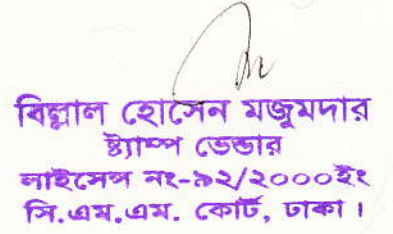 বিল্লাল হোসেন মজুমদার
ষ্ট্যাম্প ভেন্ডার
লাইসেন্স নং-৯২/২০০০ইং
সি.এম.এম. কোর্ট, ঢাকা।